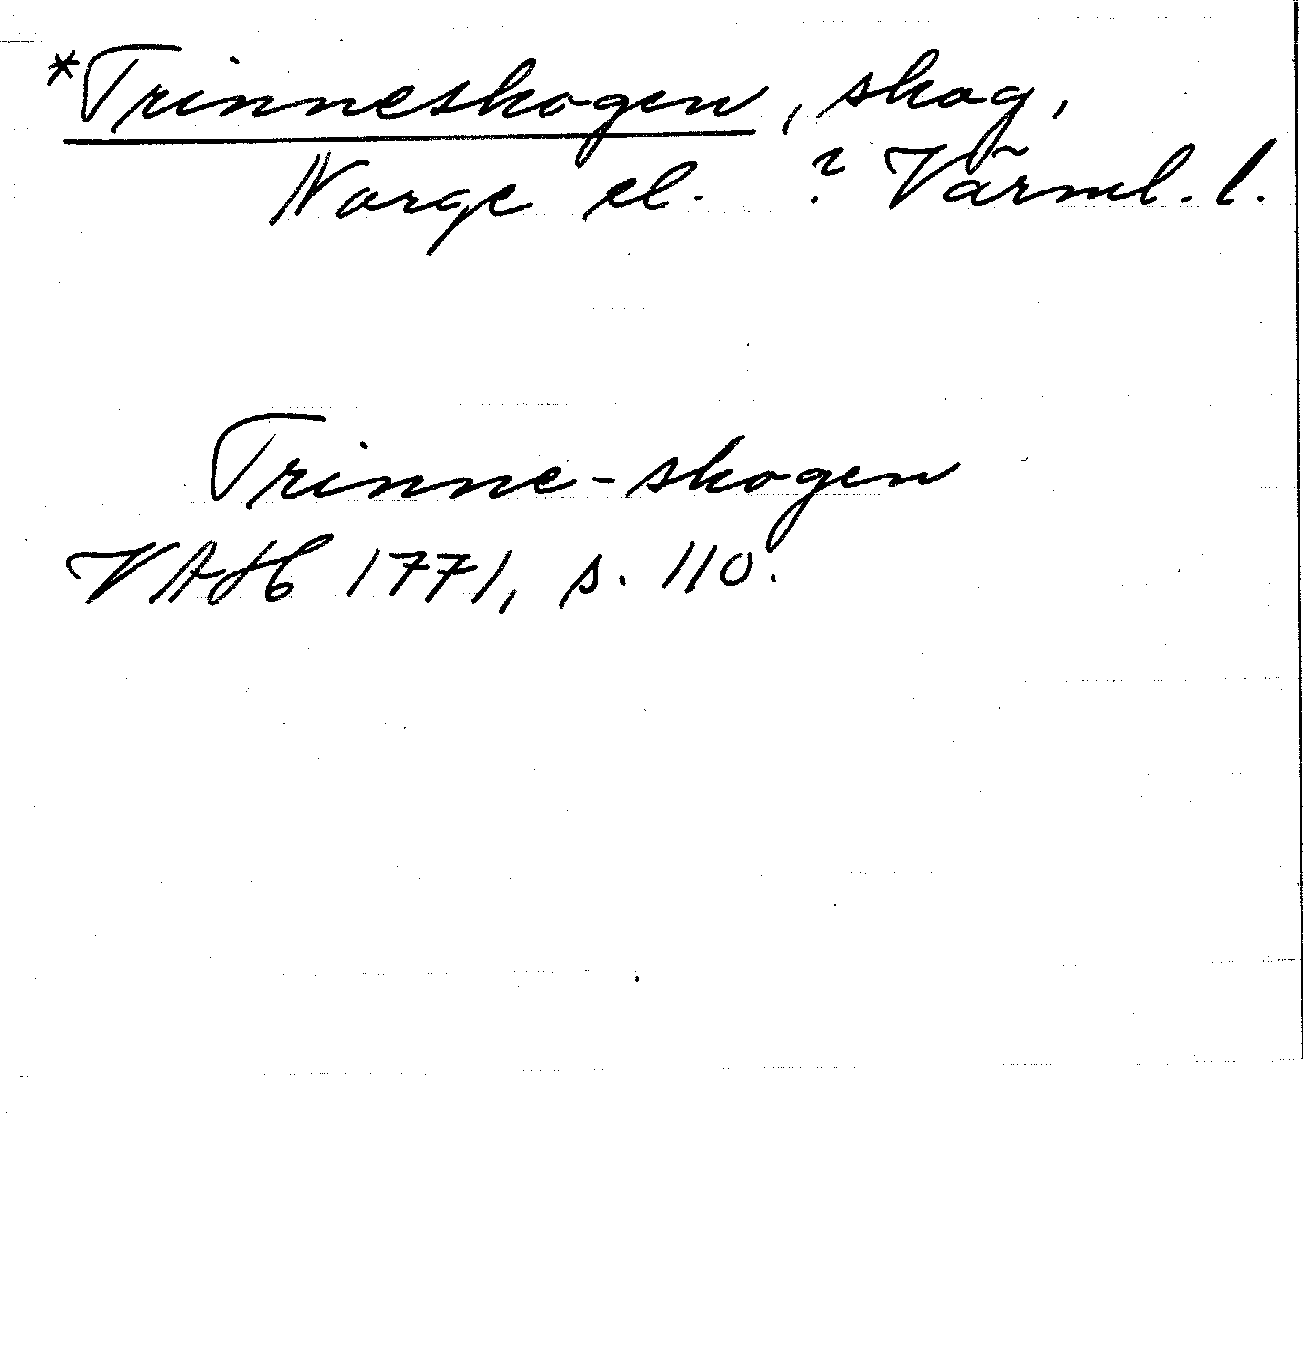 *Trinneskogen, skog,
Norge el. ? Värml. l.
Trinne-skogen
VAH 1771, s. 110.